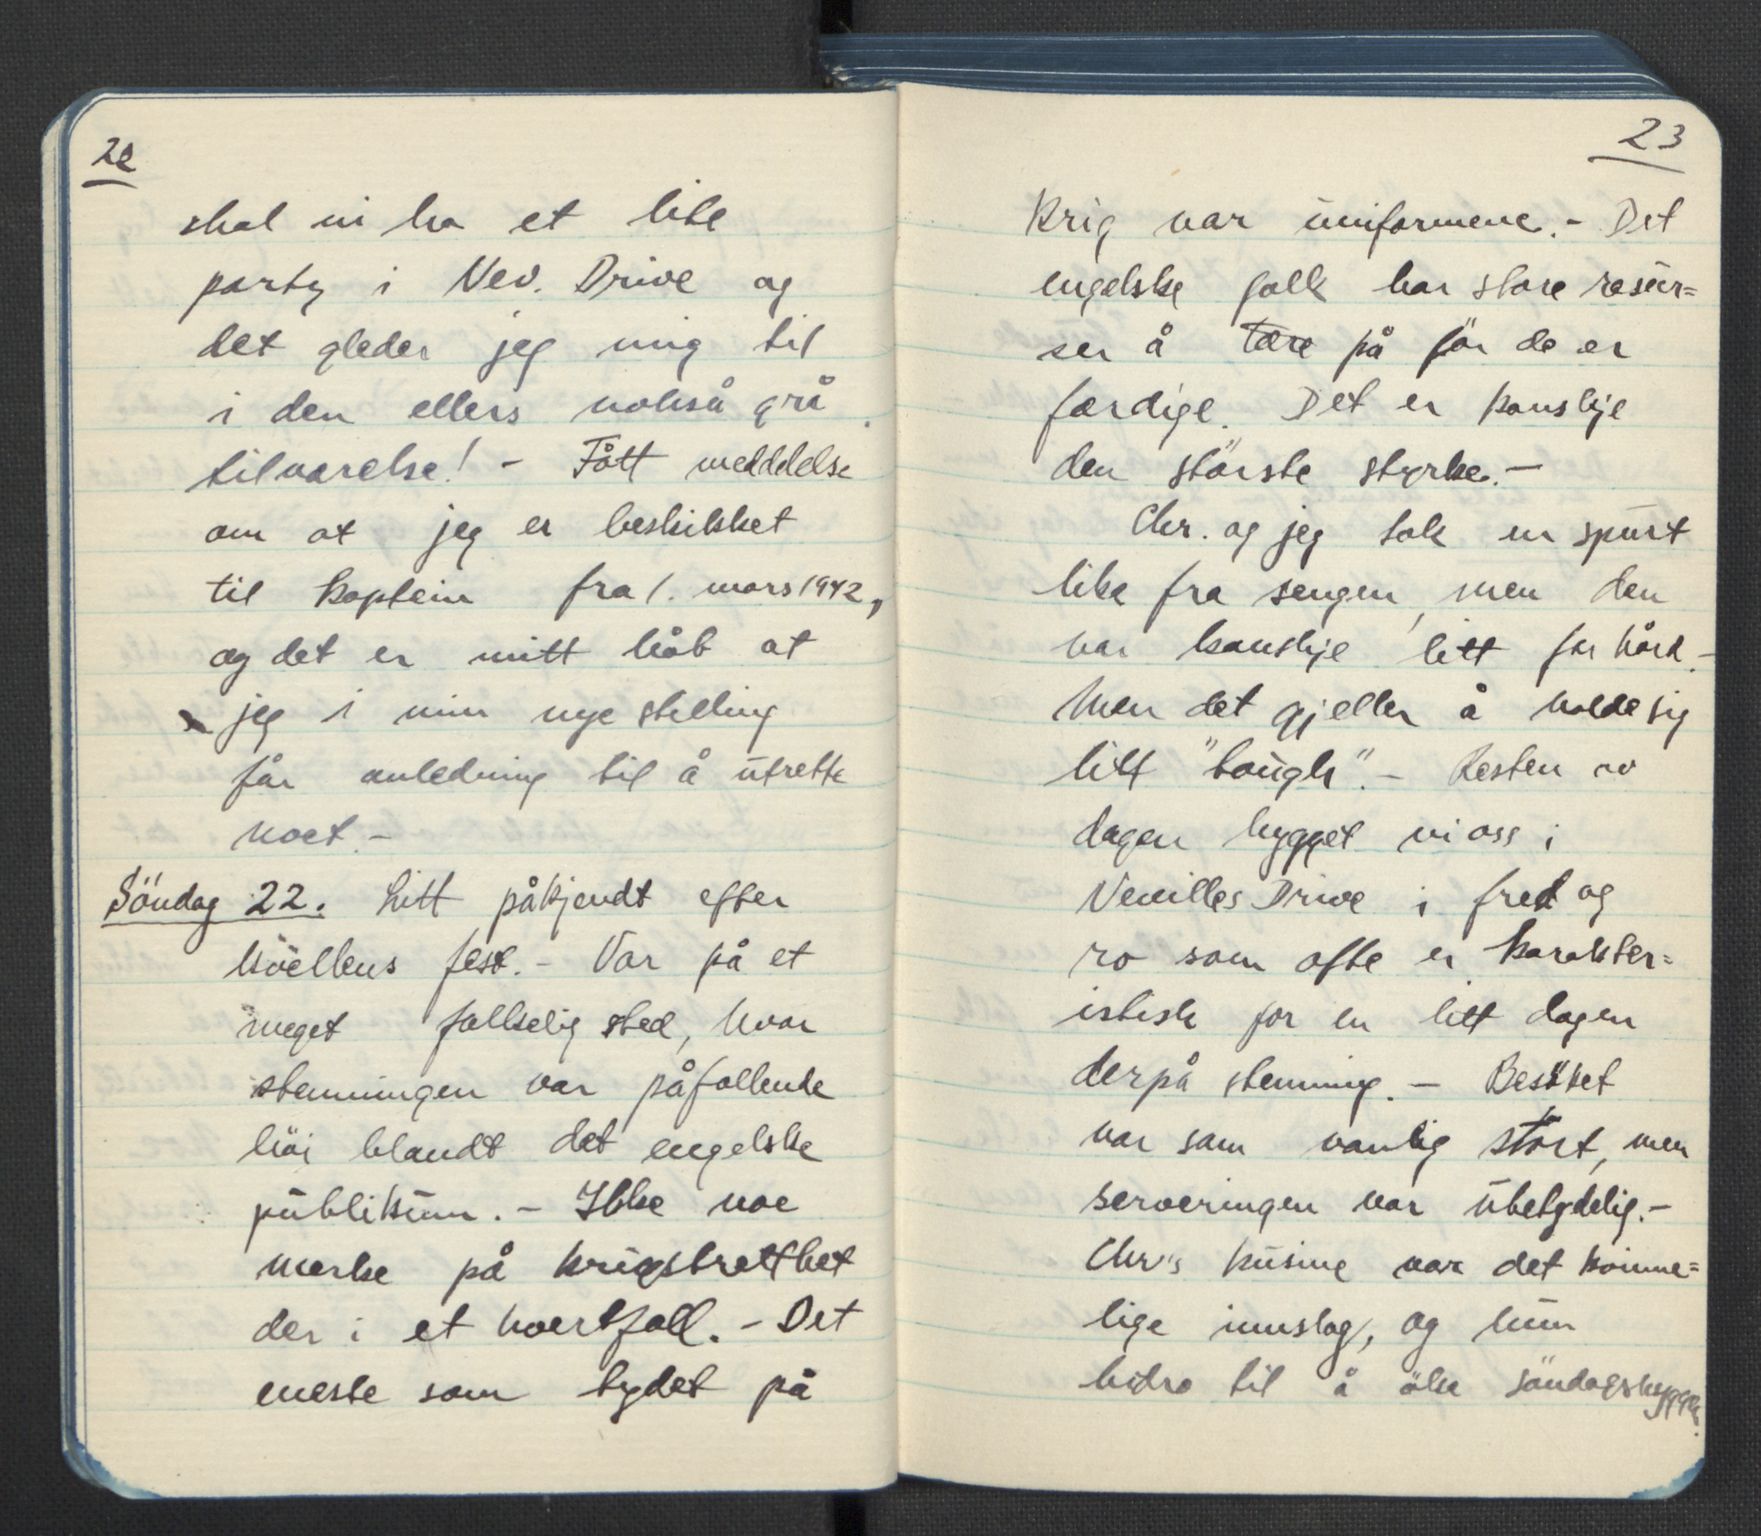 22
skal vi ha et lite
party i Nev. Drive og
det gleder jeg mig til
i den ellers nokså grå
tilvarelse! - Fått meddelelse
om at jeg er beskikket
til kaptein fra 1. mars 1942,
og det er mitt håb at
jeg i min nye stilling
får anledning til å utrette
noet. -
Söndag 22. Litt påkjendt efter
kvellens fest. - Var på et
meget folkselig sted, hvor
stemningen var påfallende
höi blandt det engelske
publikum. - Ikke noe
merke på krigstretthet
der i et hvertfall. - Det
eneste som tydet på
23
krig var uniformene. - Det
engelske folk har store resur=
ser å tære på för de er
færdige. Det er kanskje
den störste styrke. -
Chr. og jeg tok en spurt
like fra sengen, men den
var kanskje litt for hård. -
Men det gjeller å holde sig
litt "tough". - Resten av
dagen hygget vi oss i
Nevilles Drive i fred og
ro som ofte er karakter=
istisk for en litt dagen
derpå stemning. - Besöket
var som vanlig stort, men
serveringen var ubetydelig. -
Chr's kusine var det kvinne=
lige innslag, og hun
bidro til å öke söndagshyggen.